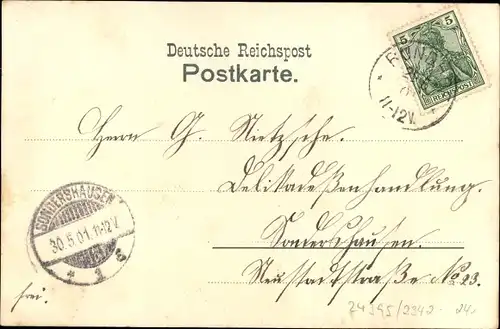 Deutsche Reichspost
Postkarte.
5 5
REICHSPOST
11-12V.
Herrn G. Nietzsche.
Delikadeßenhandlung.
Sondershausen.
Neustadtstraße No. 23.
SONDERSHAUSEN
30.5.01.11-12V.
* 1 c
frei.
74395/2342